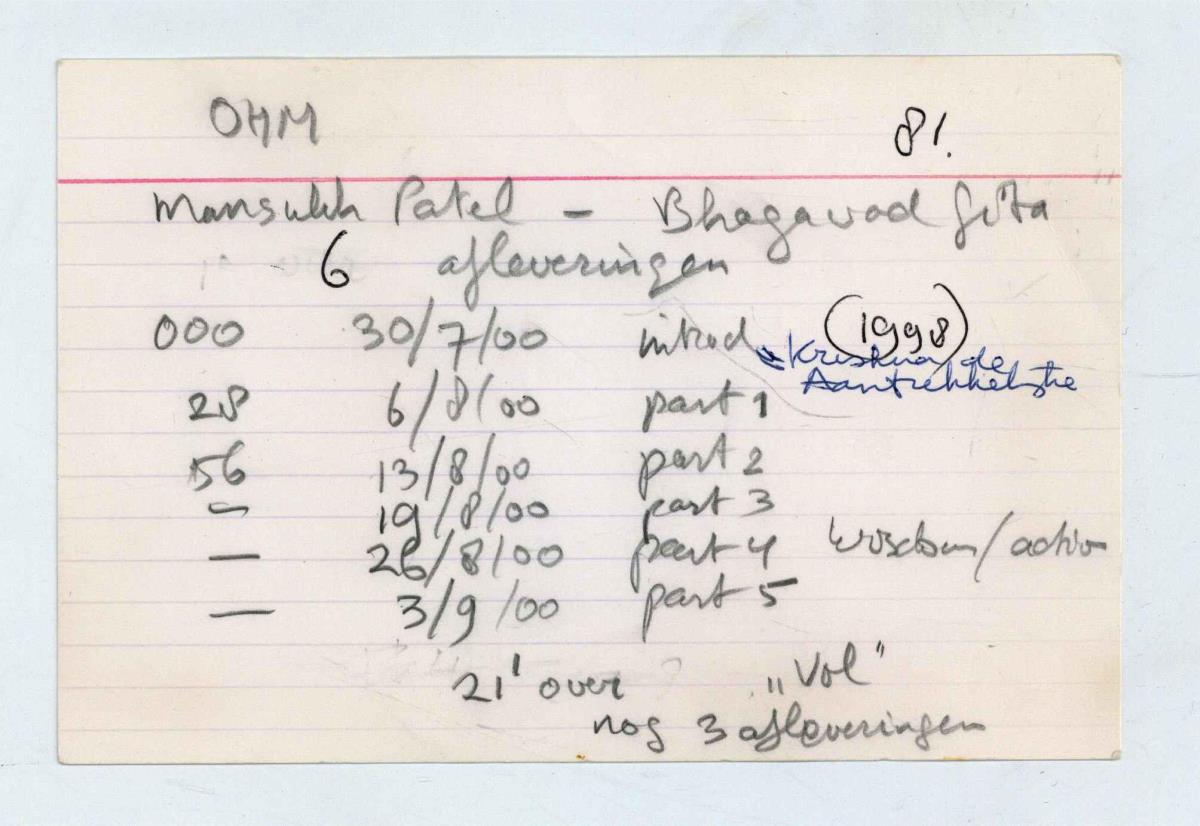 OHM 81.
Mansukh Patel - Bhagavad Gita
6 afleveringen
000 30/7/00 introd (1998)
Krishna, de
Aantrekkelijke
28 6/8/00 part 1
56 13/8/00 part 2
- 19/8/00 part 3
- 26/8/00 part 4 wisdom/action
- 3/9/00 part 5
21' over „Vol"
nog 3 afleveringen